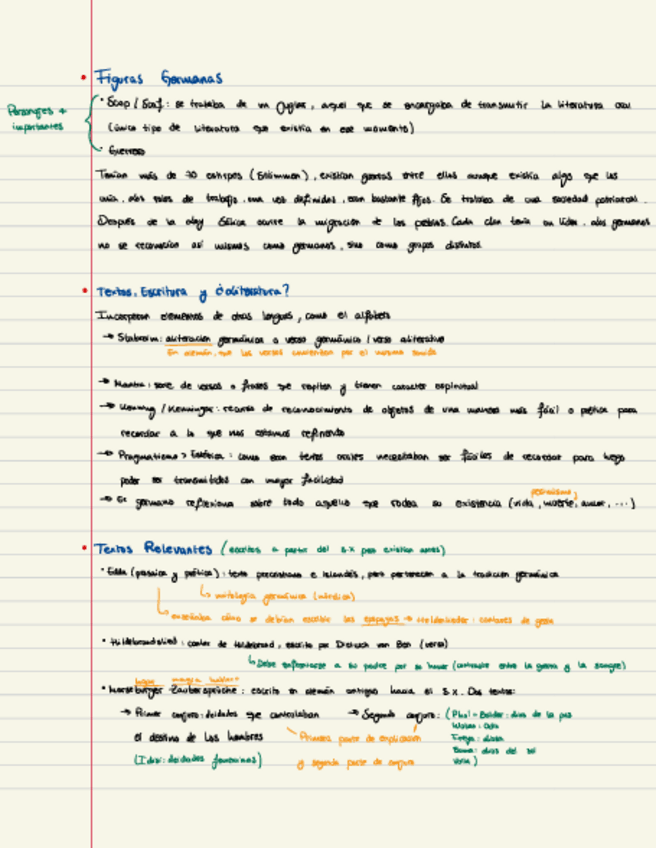 • Figuras Germanas
Personajes + importantes
• Scop / Scof: se trataba de un juglar, aquel que se encargaba de transmitir la literatura oral
(único tipo de literatura que existía en ese momento)
• Guerrero
Tenían más de 70 estirpes (Stämmen), existían guerras entre ellas aunque existía algo que los
unía, los roles de trabajo, una vez definidos, eran bastante fijos. Se trataba de una sociedad patriarcal.
Después de la ocurre la migración de los pueblos. Cada clan tenía un líder. Los germanos
no se reconocían así mismos como germanos, sino como grupos distintos.
• Textos, Escritura y ¿literatura?
Incorporan elementos de otras lenguas, como el alfabeto
→ Stabreim: aliteración germánica o verso germánico / verso aliterativo
En alemán, que los versos comienzan por el mismo sonido
→ Mantra: serie de versos o frases que repiten y tienen caracter espiritual
→ Kenning / Kenningar: recurso de reconocimiento de objetos de una manera más fácil o poética para
recordar a lo que nos estamos refiriendo
→ Pragmatismo > Estética: como eran textos orales necesitaban ser fáciles de recordar para luego
poder ser transmitidos con mayor facilidad
pesimismo
→ El germano reflexiona sobre todo aquello que rodea su existencia (vida, muerte, amor, ...)
• Textos Relevantes (escritos a partir del s.X pero existían antes)
• Edda (prosaica y poética): texto precristiano e islandés, pero pertenecen a la tradición germánica
↳ mitología germánica (nórdica)
↳ enseñaba cómo se debían escribir las epopeyas → Heldenlieder: cantares de gesta
• Hildebrandslied: cantar de Hildebrand, escrito por Dietrich von Bern (verso)
↳ Debe enfrentarse a su padre por su honor (contraste entre la guerra y la sangre)
magia hablar
• Merseburger Zaubersprüche: escrito en alemán antiguo hacia el s.X. Dos textos:
→ Primer conjuro: deidades que controlaban
el destino de los hombres
(Idisi: deidades femeninas)
Primera parte de explicación
y segunda parte de conjuro
→ Segundo conjuro: (Phol = Balder: dios de la paz
Wotan: Odin
Freya: diosa
diosa del sol